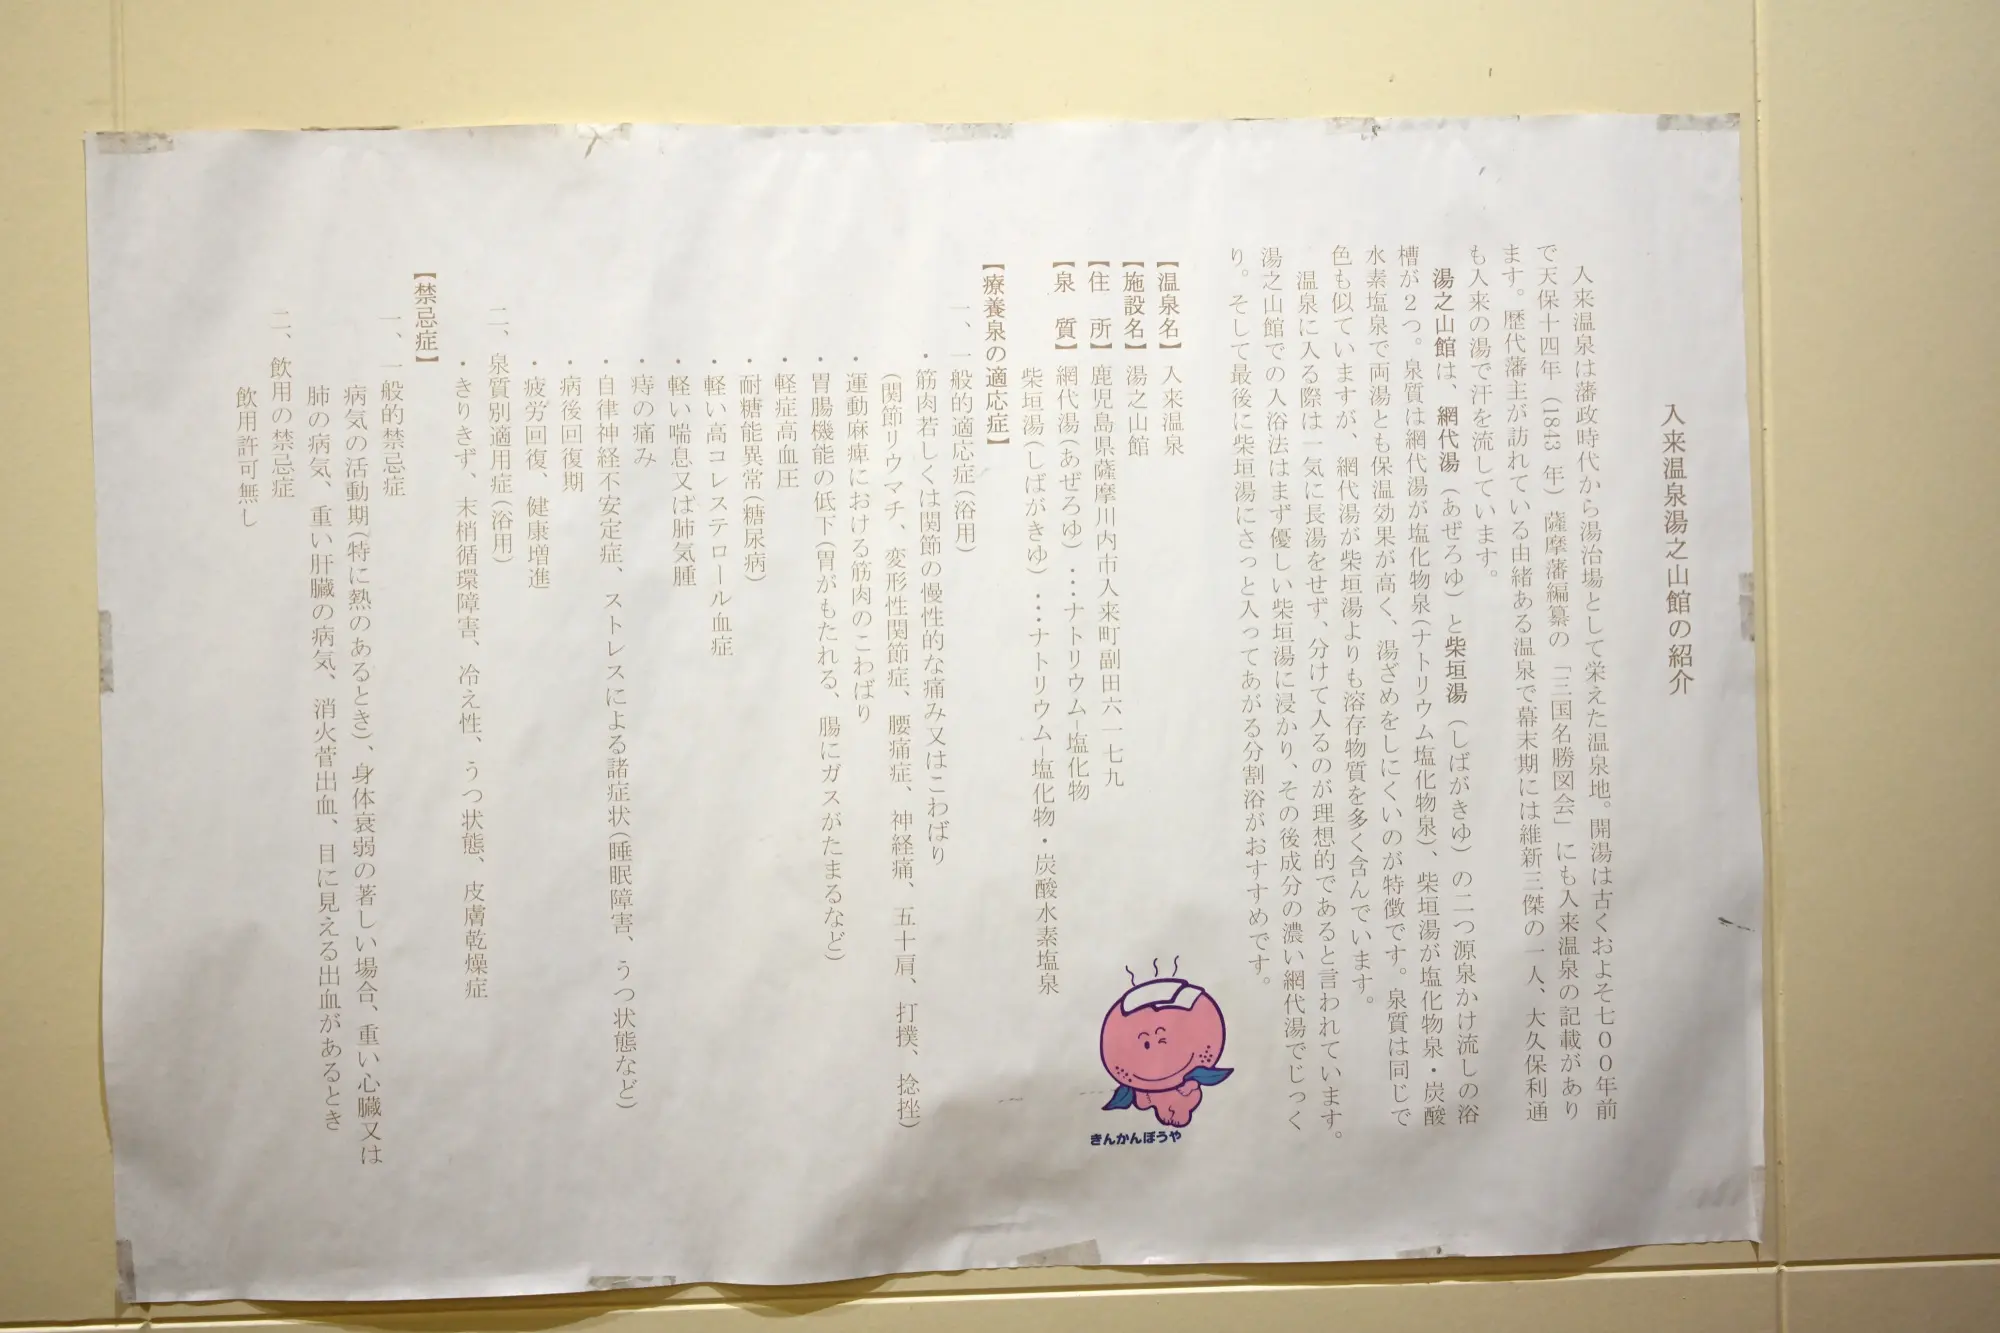 入来温泉湯之山館の紹介
入来温泉は藩政時代から湯治場として栄えた温泉地。開湯は古くおよそ七００年前
で天保十四年（1843 年）薩摩藩編纂の「三国名勝図会」にも入来温泉の記載があり
ます。歴代藩主が訪れている由緒ある温泉で幕末期には維新三傑の一人、大久保利通
も入来の湯で汗を流しています。
湯之山館は、網代湯（あぜろゆ）と柴垣湯（しばがきゆ）の二つ源泉かけ流しの浴
槽が２つ。泉質は網代湯が塩化物泉(ナトリウム塩化物泉)、柴垣湯が塩化物泉・炭酸
水素塩泉で両湯とも保温効果が高く、湯ざめをしにくいのが特徴です。泉質は同じで
色も似ていますが、網代湯が柴垣湯よりも溶存物質を多く含んでいます。
温泉に入る際は一気に長湯をせず、分けて入るのが理想的であると言われています。
湯之山館での入浴法はまず優しい柴垣湯に浸かり、その後成分の濃い網代湯でじっく
り。そして最後に柴垣湯にさっと入ってあがる分割浴がおすすめです。
【温泉名】入来温泉
【施設名】湯之山館
【住　所】鹿児島県薩摩川内市入来町副田六一七九
【泉　質】網代湯(あぜろゆ)…ナトリウム–塩化物
柴垣湯(しばがきゆ)…ナトリウム–塩化物・炭酸水素塩泉
【療養泉の適応症】
一、一般的適応症(浴用)
・筋肉若しくは関節の慢性的な痛み又はこわばり
(関節リウマチ、変形性関節症、腰痛症、神経痛、五十肩、打撲、捻挫)
・運動麻痺における筋肉のこわばり
・胃腸機能の低下(胃がもたれる、腸にガスがたまるなど)
・軽症高血圧
・耐糖能異常(糖尿病)
・軽い高コレステロール血症
・軽い喘息又は肺気腫
・痔の痛み
・自律神経不安定症、ストレスによる諸症状(睡眠障害、うつ状態など)
・病後回復期
・疲労回復、健康増進
二、泉質別適用症(浴用)
・きりきず、末梢循環障害、冷え性、うつ状態、皮膚乾燥症
【禁忌症】
一、一般的禁忌症
病気の活動期(特に熱のあるとき)、身体衰弱の著しい場合、重い心臓又は
肺の病気、重い肝臓の病気、消火菅出血、目に見える出血があるとき
二、飲用の禁忌症
飲用許可無し
きんかんぼうや